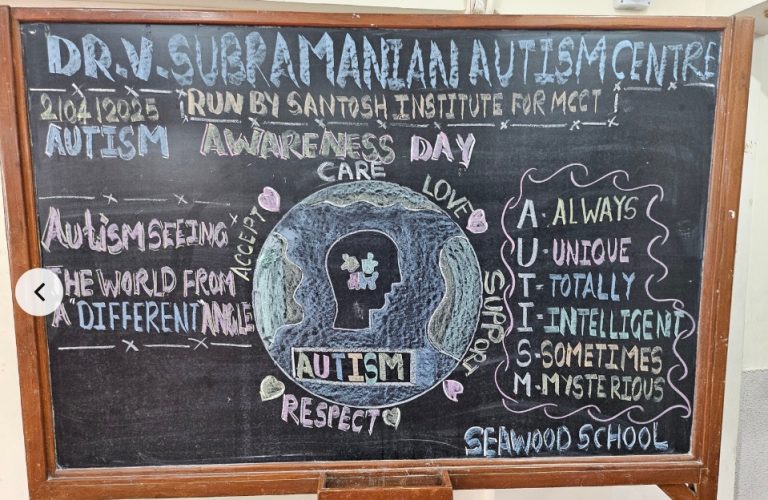 DR.V.SUBRAMANIAN AUTISM CENTRE
2/04/2025
RUN BY SANTOSH INSTITUTE FOR MCCT
AUTISM AWARENESS DAY
CARE
LOVE
ACCEPT
SUPPORT
RESPECT
AUTISM
AUTISM SEEING
THE WORLD FROM
A "DIFFERENT" ANGLE
A - ALWAYS
U - UNIQUE
T - TOTALLY
I - INTELLIGENT
S - SOMETIMES
M - MYSTERIOUS
SEAWOOD SCHOOL